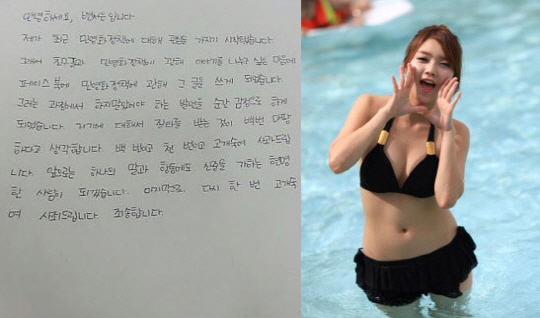 안녕하세요, 변서은 입니다.
제가 최근 민영화정책에 대해 관심을 가지기 시작했습니다.
그래서 친구들과 민영화정책에 관해 이야기를 나누고 싶은 마음에
페이스북에 민영화정책에 관해 그 글을 쓰게 되었습니다.
그러는 과정에서 하지말았어야 하는 발언을 순간 감정으로 하게
되었습니다. 저가에 대해서 질타를 받는 것이 백번 마땅
하다고 생각합니다. 백 번이고 천 번이고 고개숙여 사과드립
니다. 앞으로는 하나의 말과 행동에도 신중을 가하는 현명
한 사람이 되겠습니다. 마지막으로, 다시 한 번 고개숙
여 사죄드립니다. 죄송합니다.